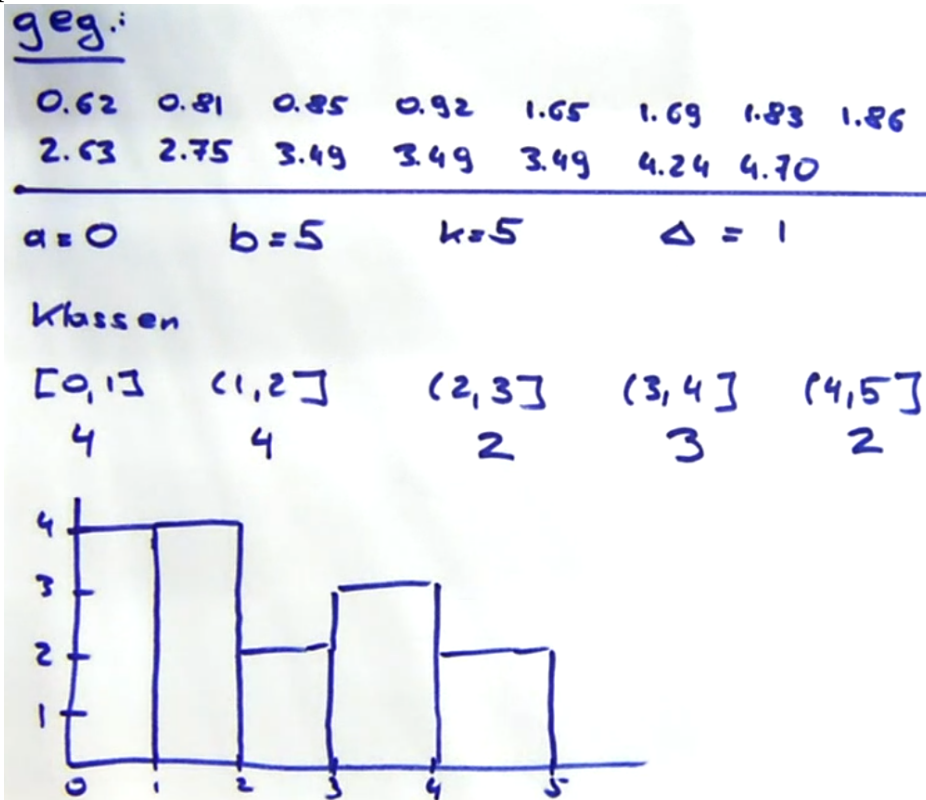 geg.:
0.62 0.81 0.85 0.92 1.65 1.69 1.83 1.86
2.63 2.75 3.49 3.49 3.49 4.24 4.70
a=0 b=5 k=5 Δ = 1
Klassen
[0,1] (1,2] (2,3] (3,4] (4,5]
4 4 2 3 2
4
3
2
1
0 1 2 3 4 5